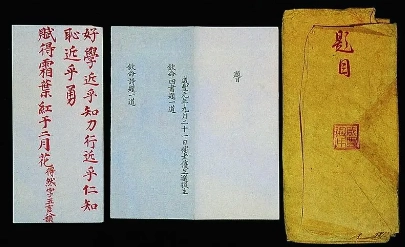 題目
題目
元年九月二十一日
欽命四書題一道
欽命詩題一道
好學近乎知力行近乎仁知
恥近乎勇
賦得霜葉紅于二月花得然字五言